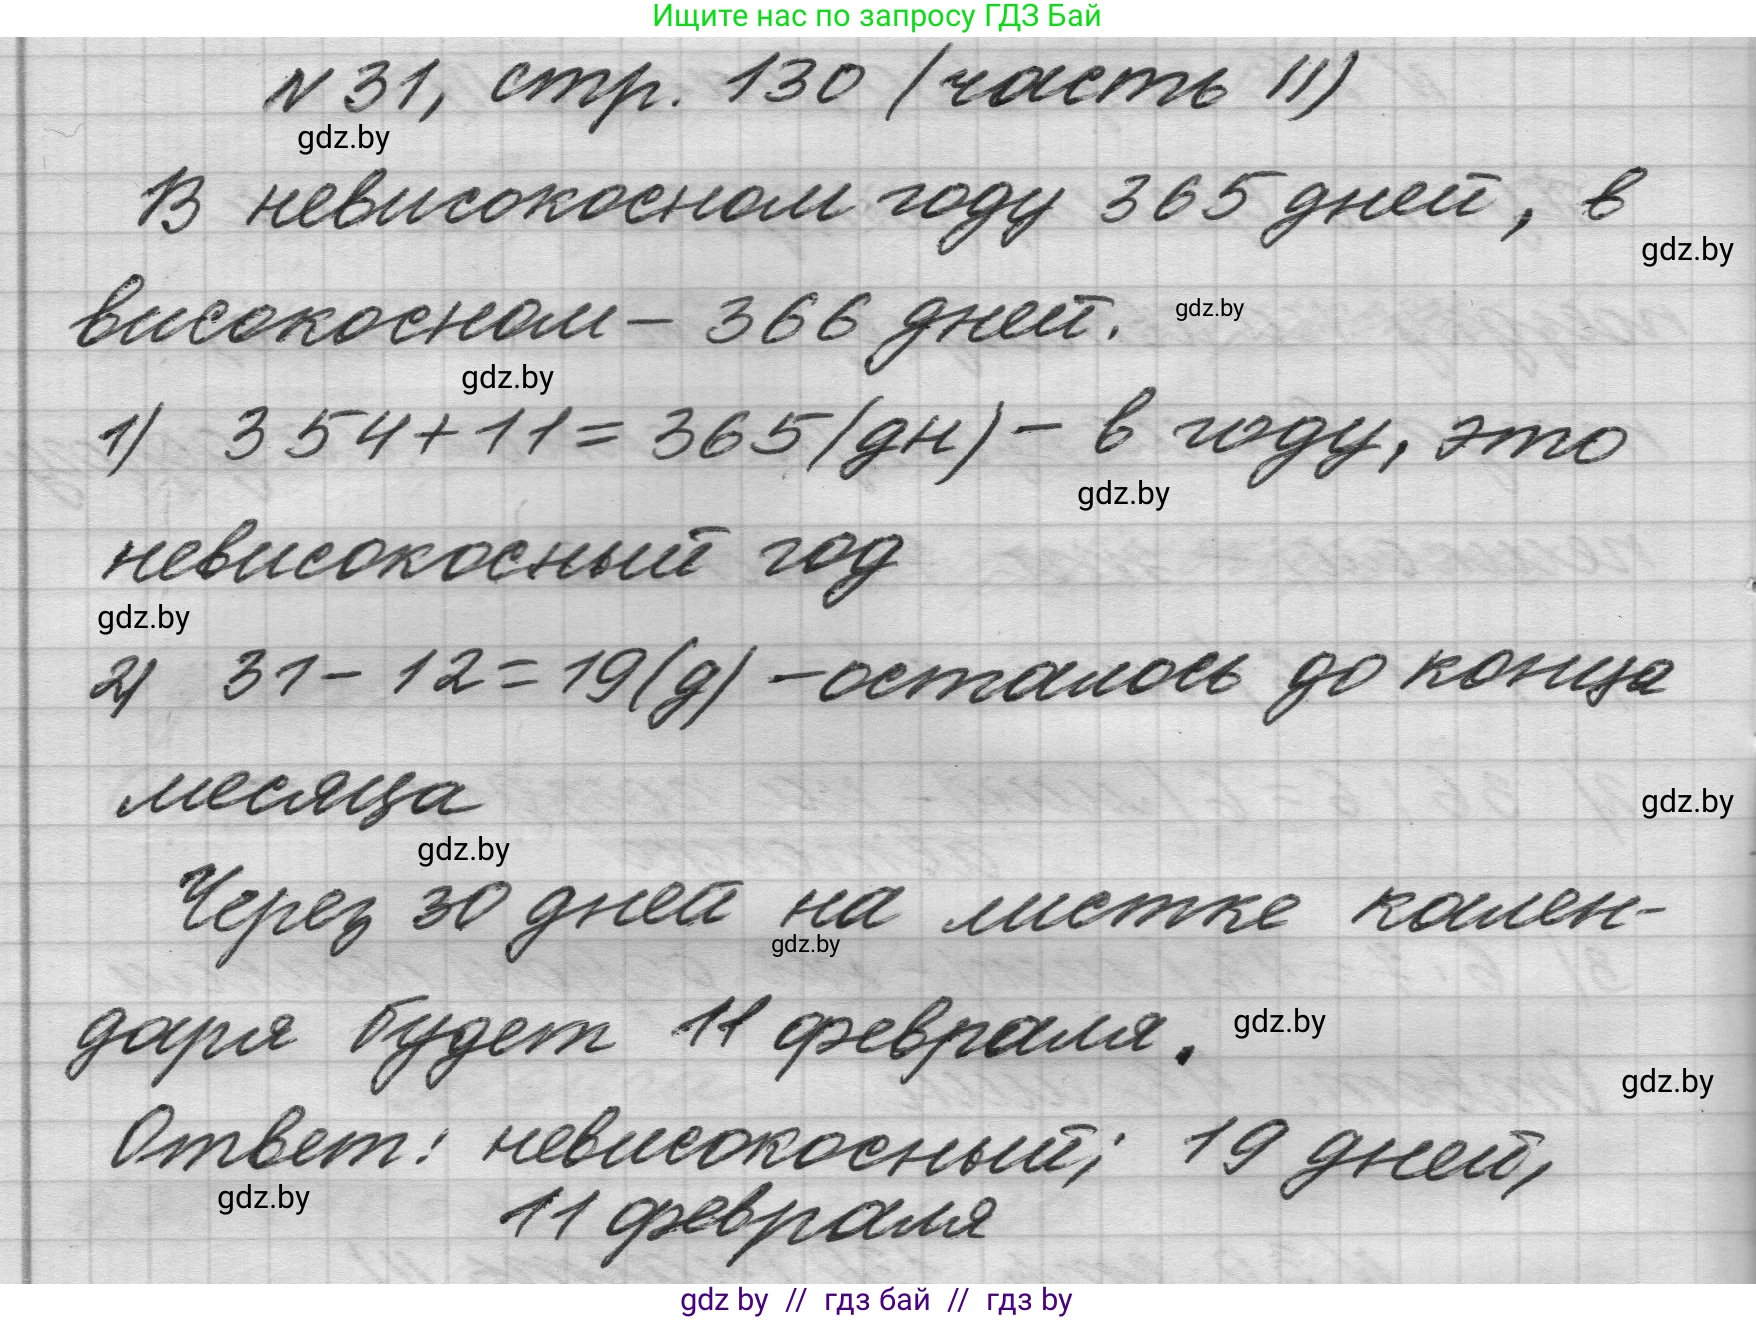 Ищите нас по запросу ГДЗ Бай
№ 31, стр. 130 (часть II)
gdz.by
В невисокосном году 365 дней, в
gdz.by
високосном – 366 дней.
gdz.by
gdz.by
1) 354+11=365(дн) – в году, это
gdz.by
невисокосный год
gdz.by
2) 31–12=19(д) – осталось до конца
месяца
gdz.by
gdz.by
Через 30 дней на листке кален-
gdz.by
даря будет 11 февраля.
gdz.by
gdz.by
Ответ: невисокосный; 19 дней,
gdz.by
11 февраля
gdz by // гдз бай // гдз by